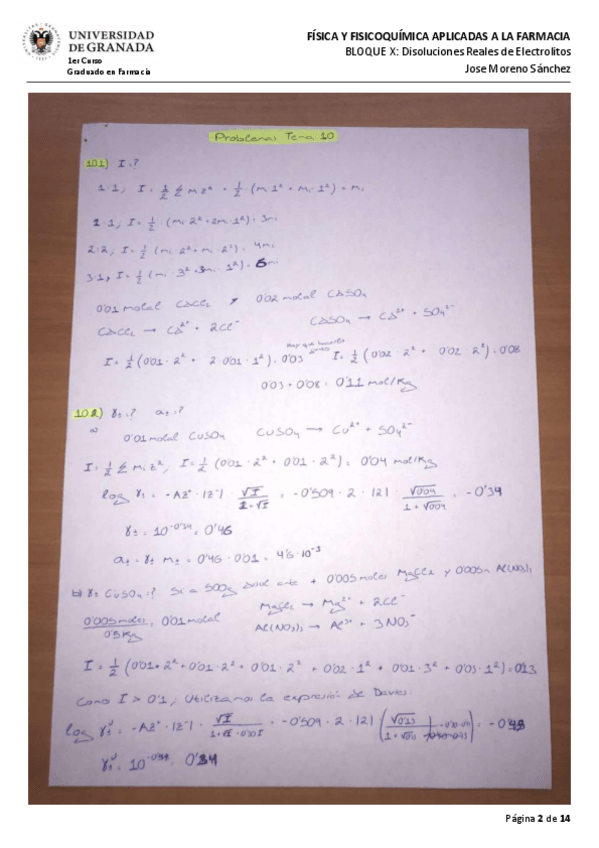 UNIVERSIDAD
DE GRANADA
1er Curso
Graduado en Farmacia
FÍSICA Y FISICOQUÍMICA APLICADAS A LA FARMACIA
BLOQUE X: Disoluciones Reales de Electrolitos
Jose Moreno Sánchez
Problemas Tema 10
10.1) I ?
1:1, I = 1/2 Σ m z² = 1/2 · (mi 1² + mi 1²) = mi
2:1, I = 1/2 (mi 2² + 2mi 1²) = 3mi
2:2, I = 1/2 (mi 2² + mi 2²) = 4mi
3:1, I = 1/2 (mi 3² + 3mi 1²) = 6mi
0'01 molal CaCl₂ y 0'02 molal CaSO₄
CaCl₂ → Ca²⁺ + 2Cl⁻ CaSO₄ → Ca²⁺ + SO₄²⁻
I = 1/2 (0'01 · 2² + 2·0'01 · 1²) = 0'03 I = 1/2 (0'02 · 2² + 0'02 · 2²) = 0'08
0'03 + 0'08 = 0'11 mol/Kg
10.2) γ± ? a± ?
a) 0'01 molal CuSO₄ CuSO₄ → Cu²⁺ + SO₄²⁻
I = 1/2 Σ mi z², I = 1/2 (0'01 · 2² + 0'01 · 2²) = 0'04 mol/Kg
log γ± = -AZ⁺ · |Z⁻| · √I / 1+√I = -0'509 · 2 · |2| · √0'04 / 1+√0'04 = -0'34
γ± = 10^-0'34 = 0'46
a± = γ± m± = 0'46 · 0'01 = 4'6·10⁻³
b) γ± CuSO₄ ? Si a 500g + 0'005 moles MgCl₂ y 0'005 Al(NO₃)₃
MgCl₂ → Mg²⁺ + 2Cl⁻
0'005 moles / 0'5 Kg = 0'01 molal Al(NO₃)₃ → Al³⁺ + 3NO₃⁻
I = 1/2 (0'01 · 2² + 0'01 · 2² + 0'01 · 2² + 0'02 · 1² + 0'01 · 3² + 0'03 · 1²) = 0'13
Como I > 0'1, utilizamos la expresión de Davies:
log γ± = -AZ⁺ · |Z⁻| · √I / 1+√I - 0'30 I = -0'509 · 2 · |2|
γ± = 0'34
Página 2 de 14